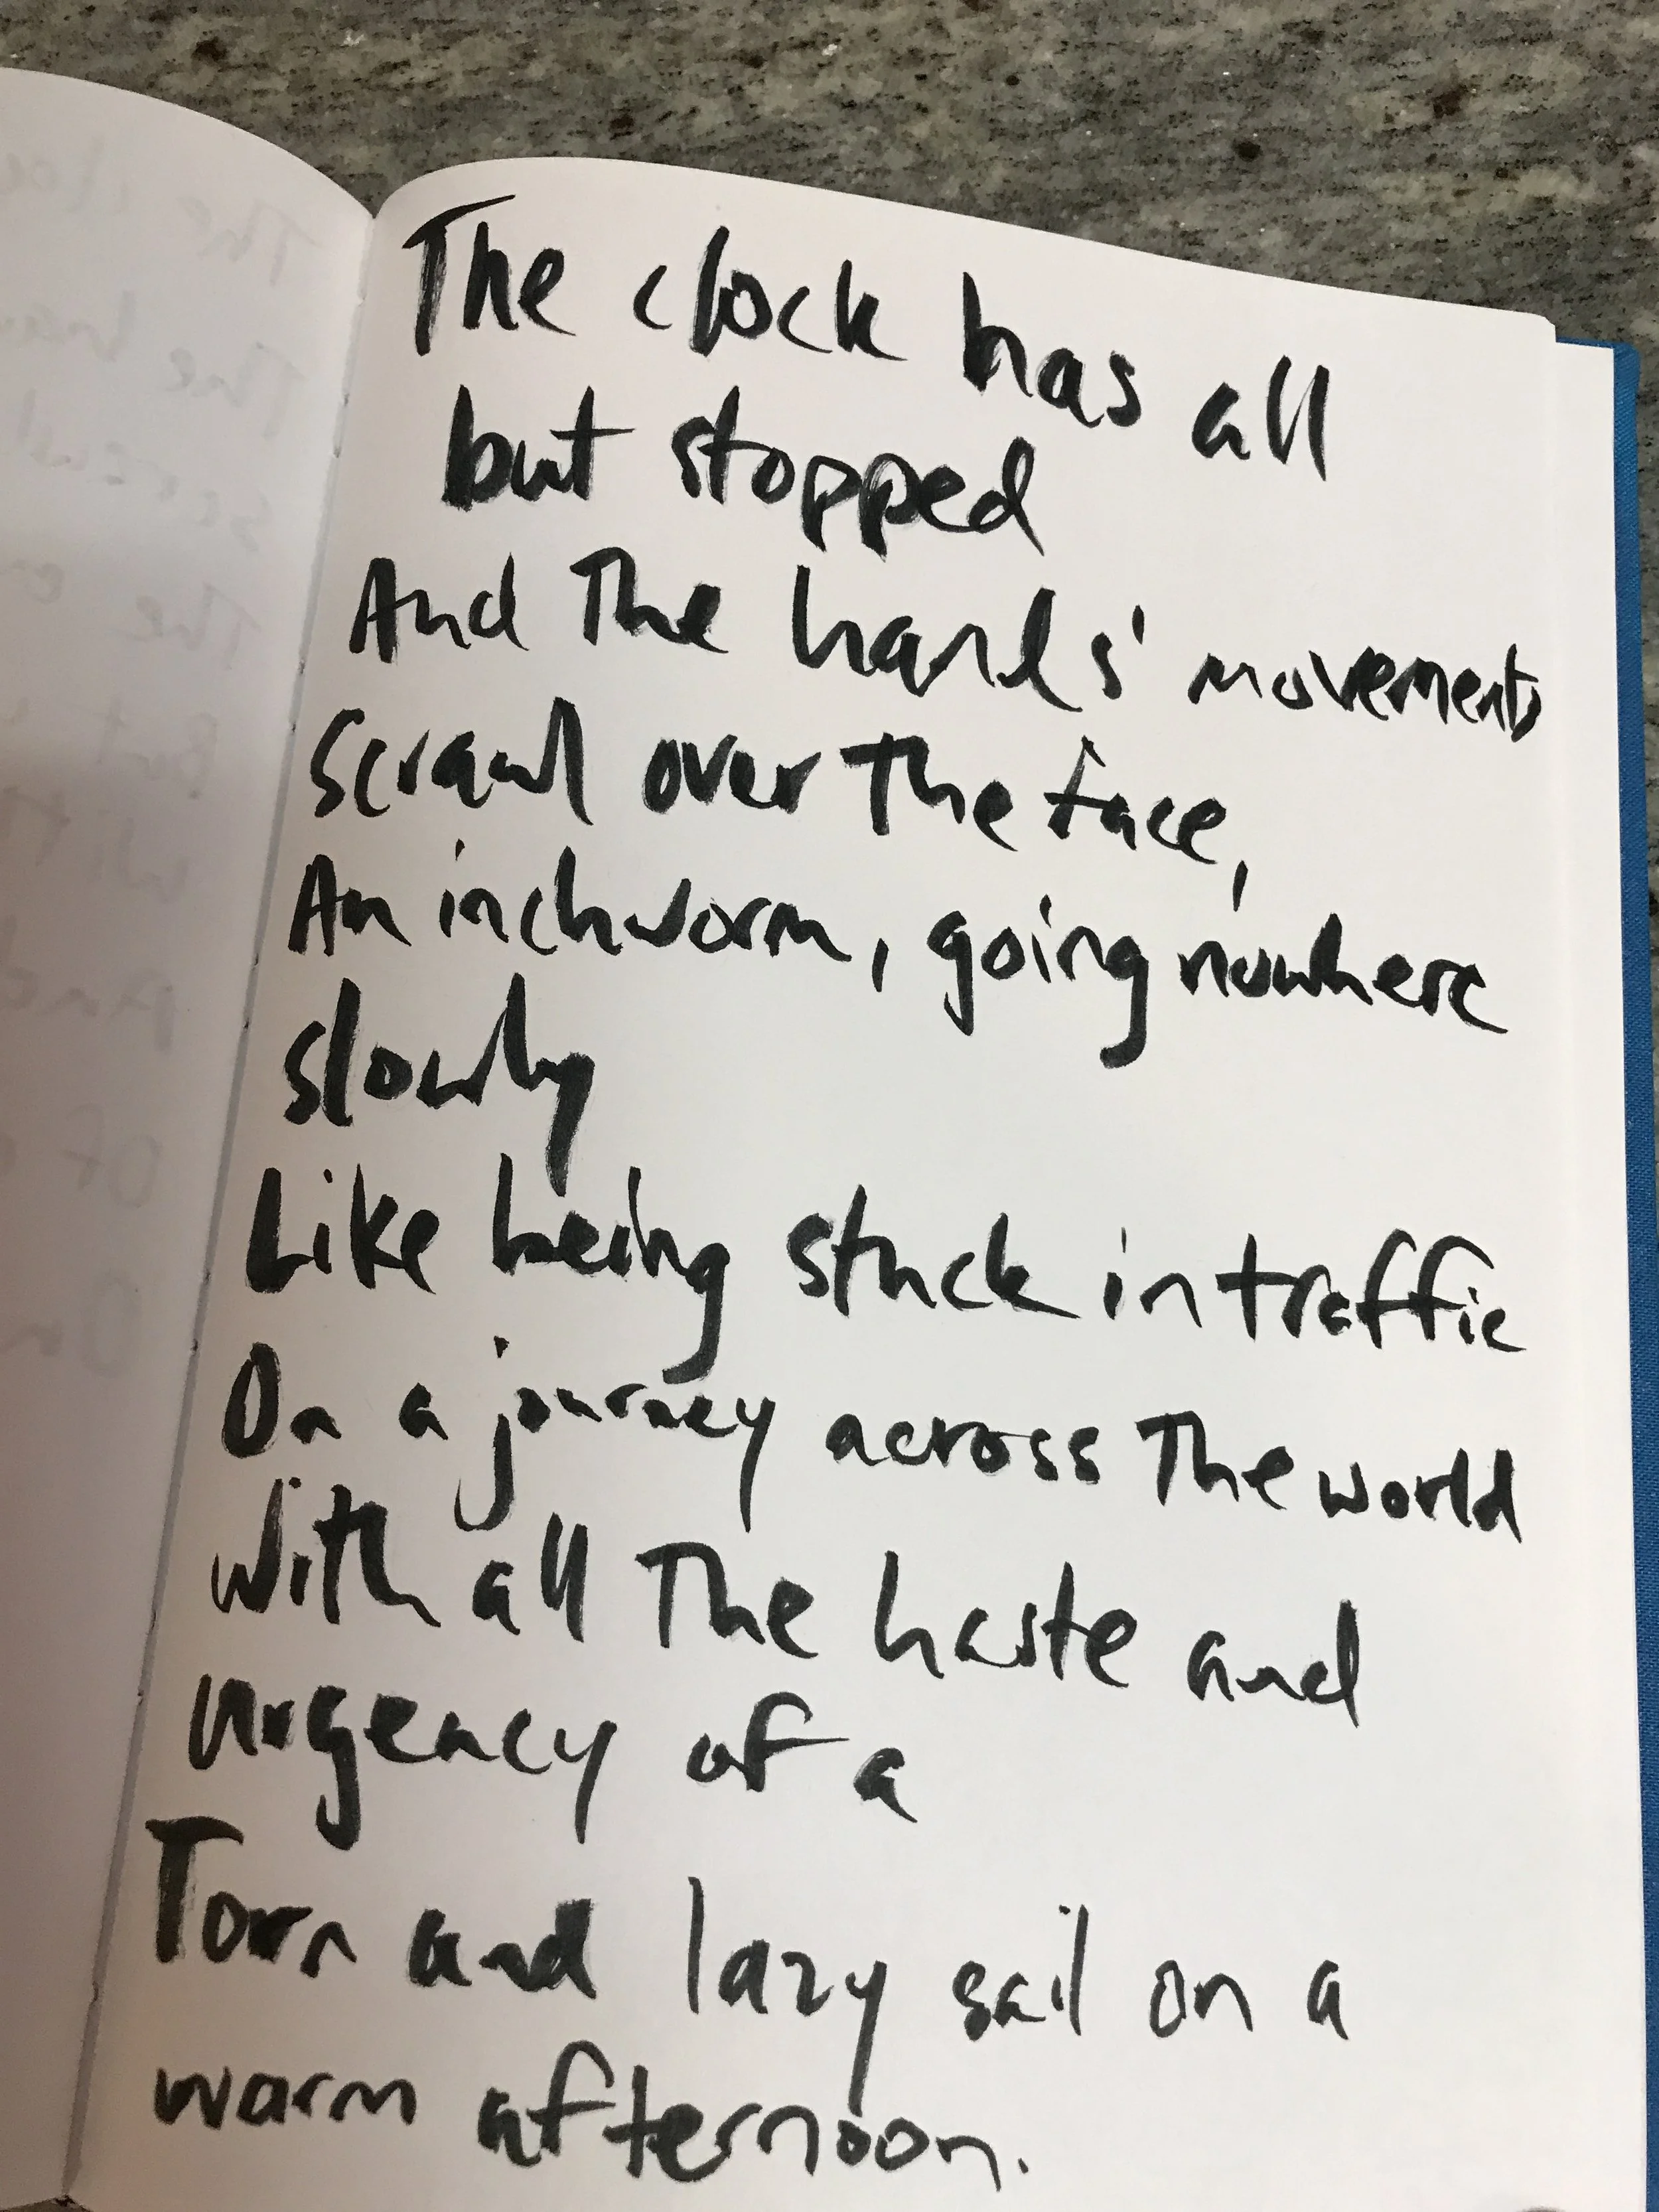 The clock has all
but stopped
And The hands' movements
Scrawl over The face,
An inchworm, going nowhere
slowly
Like being stuck in traffic
On a journey across The world
With all The haste and
urgency of a
Torn and lazy sail on a
warm afternoon.